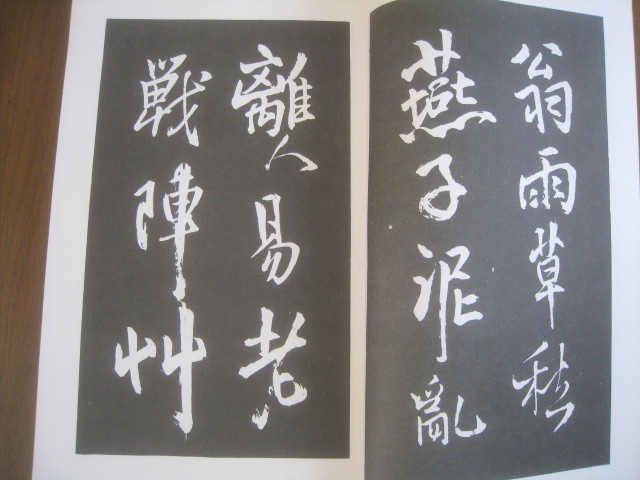 翁雨草愁
燕子泥亂
離人易老
戰陣艸